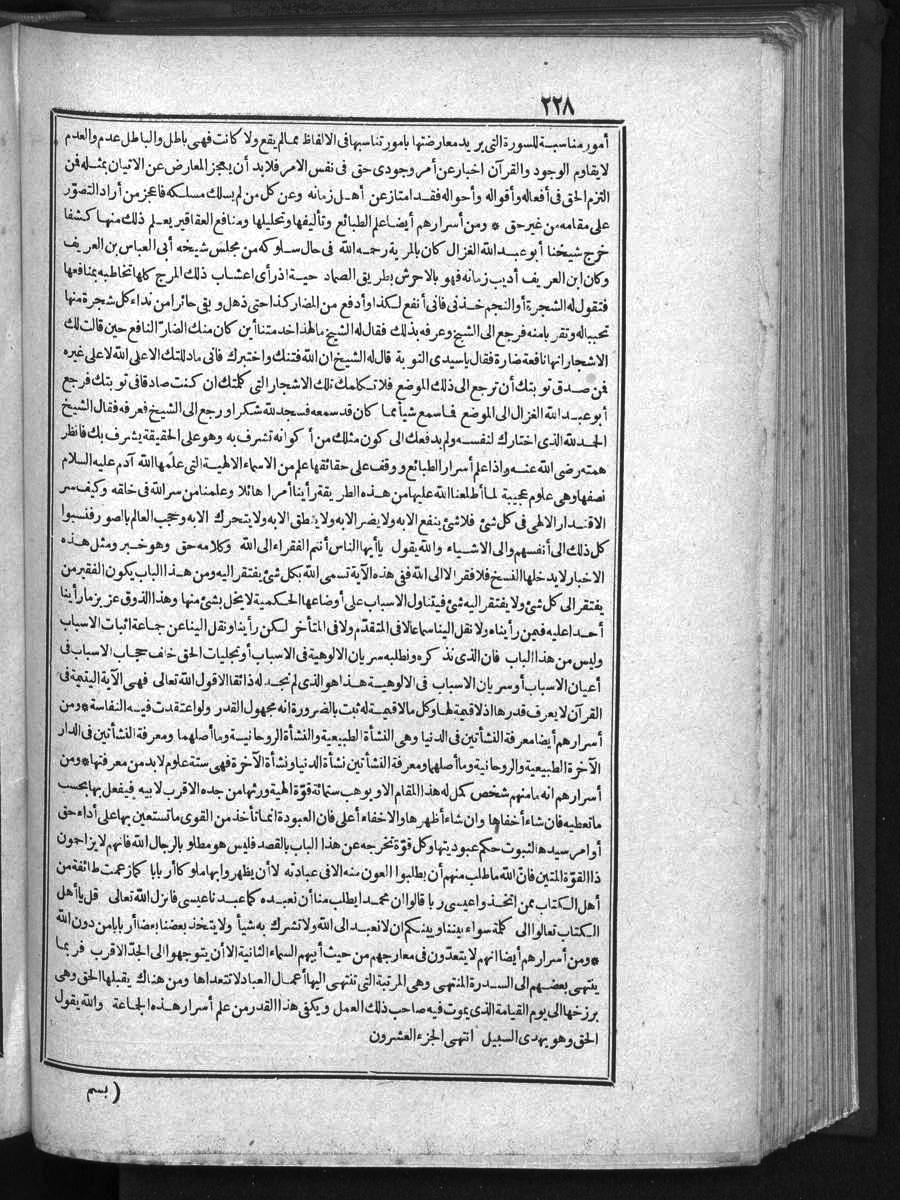 ٢٢٨
أمور مناسبة للسورة التي يريد معارضتها بامور تناسبها في الالفاظ مما لم يقع ولا كانت فهي باطل والباطل عدم والعدم
لا يقاوم الوجود والقرآن اخبار عن أمر وجودي حق في نفس الامر فلا بد أن يعجز المعارض عن الاتيان بمثله فن
التزم الحق في أفعاله وأقواله وأحواله فقد امتاز عن أهل زمانه وعن كل من لم يسلك مسلكه فاعجز من أراد التصوّر
على مقامه من غير حق * ومن أسرارهم أيضا علم الطبائع وتأليفها وتحليلها ومنافع العقاقير يعلم ذلك منها كشفا
خرج شيخنا أبو عبد الله الغزال كان بالمرية رحمه الله في حال سلوكه من مجلس شيخه أبي العباس بن العريف
وكان ابن العريف أديب زمانه فهو بالاحرش بطريق الصمادحية اذ رأى اعشاب ذلك المرج كلها تخاطبه بمنافعها
فتقول له الشجرة أو النجم خذني فاني أنفع لكذا وأدفع من المضار كذا حتى ذهل وبقي حائرا من نداء كل شجرة منها
تحببا له وتقربا منه فرجع الى الشيخ وعرفه بذلك فقال له الشيخ ما لهذا خدمتنا أين كان منك الضارّ النافع حين قالت لك
الاشجار انها نافعة ضارة فقال يا سيدي التوبة قال له الشيخ ان الله فتنك واختبرك فاني ما دللتك الا على الله لا على غيره
فمن صدق توبتك أن ترجع الى ذلك الموضع فلا تكلمك تلك الاشجار التي كلمتك ان كنت صادقا في توبتك فرجع
أبو عبد الله الغزال الى الموضع فما سمع شيأ مما كان قد سمعه فسجد لله شكرا ورجع الى الشيخ فعرفه فقال الشيخ
الحمد لله الذي اختارك لنفسه ولم يدفعك الى كون مثلك من أكوانه تشرف به وهو على الحقيقة يشرف بك فانظر
همته رضي الله عنه واذا علم أسرار الطبائع ووقف على حقائقها علم من الاسماء الالهية التي علمها الله آدم عليه السلام
نصفها وهي علوم عجيبة لما أطلعنا الله عليها من هذه الطريقة رأينا أمرا هائلا وعلمنا من سر الله في خلقه وكيف سر
الاقتدار الالهي في كل شئ فلا شئ ينفع الا به ولا يضر الا به ولا ينطق الا به ولا يتحرك الا به وحجب العالم بالصور فنسبوا
كل ذلك الى أنفسهم والى الاشياء والله يقول يا أيها الناس أنتم الفقراء الى الله وكلامه حق وهو خبر ومثل هذه
الاخبار لا يدخلها النسخ فلا فقر الا الى الله ففي هذه الآية تسمى الله بكل شئ يفتقر اليه ومن هذا الباب يكون الفقير من
يفتقر الى كل شئ ولا يفتقر اليه شئ فيتناول الاسباب على أوضاعها الحكمية لا يخل بشئ منها وهذا الذوق عزيز ما رأينا
أحدا عليه فيمن رأيناه ولا نقل الينا سماعا لا في المتقدّم ولا في المتأخر لكن رأينا ونقل الينا عن جماعة اثبات الاسباب
وليس من هذا الباب فان الذي نذكره ونطلبه سريان الالوهية في الاسباب أو تجليات الحق خلف حجاب الاسباب في
أعيان الاسباب أو سريان الاسباب في الالوهية هذا هو الذي لم نجد له ذائقا الا قول الله تعالى فهي الآية اليتيمة في
القرآن لا يعرف قدرها اذ لا قيمة لها وكل ما لا قيمة له ثبت بالضرورة انه مجهول القدر ولو اعتقدت فيه النفاسة * ومن
أسرارهم أيضا معرفة النشأتين في الدنيا وهي النشأة الطبيعية والنشأة الروحانية وما أصلهما ومعرفة النشأتين في الدار
الآخرة الطبيعية والروحانية وما أصلهما ومعرفة النشأتين نشأة الدنيا ونشأة الآخرة فهي ستة علوم لا بد من معرفتها * ومن
أسرارهم انه ما منهم شخص كمل له هذا المقام الا ويوهب ستمائة قوّة الهية ورثها من جده الاقرب لابيه فيفعل بها بحسب
ما تعطيه فان شاء أخفاها وان شاء أظهرها والاخفاء أعلى فان العبودة انما تأخذ من القوى ما تستعين بها على أداء حق
أوامر سيدها لثبوت حكم عبوديتها وكل قوّة تخرجه عن هذا الباب بالقصد فليس هو مطلوبا لرجال الله فانهم لا يزاحمون
ذا القوّة المتين فانّ الله ما طلب منهم أن يطلبوا العون منه الا في عبادته لا أن يظهروا بها ملوكا أربابا كما زعمت طائفة من
أهل الكتاب ممن اتخذوا عيسى ربا قالوا ان محمدا يطلب منا أن نعبده كما عبدنا عيسى فانزل الله تعالى قل يا أهل
الكتاب تعالوا الى كلمة سواء بيننا وبينكم ان لا نعبد الى الله ولا نشرك به شيأ ولا يتخذ بعضنا بعضا أربابا من دون الله
* ومن أسرارهم أيضا انهم لا يتعدّون في معارجهم من حيث أبيهم السماء الثانية الا أن يتوجهوا الى الجدّ الاقرب فربما
ينتهي بعضهم الى السدرة المنتهى وهي المرتبة التي تنتهي اليها أعمال العباد لا تتعداها ومن هناك يقبلها الحق وهي
برزخها الى يوم القيامة الذي يموت فيه صاحب ذلك العمل ويكفي هذا القدر من علم أسرار هذه الجماعة والله يقول
الحق وهو يهدى السبيل انتهى الجزء العشرون
(بسم